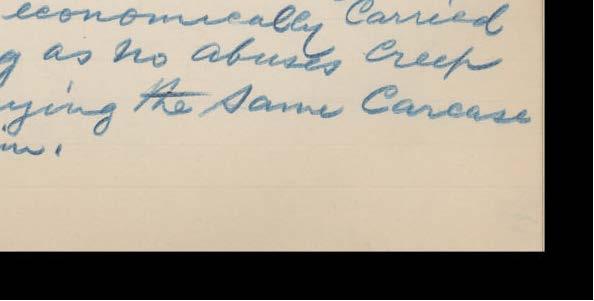 economically Carried
g as no abuses Creep
ying the same Carcase
in.